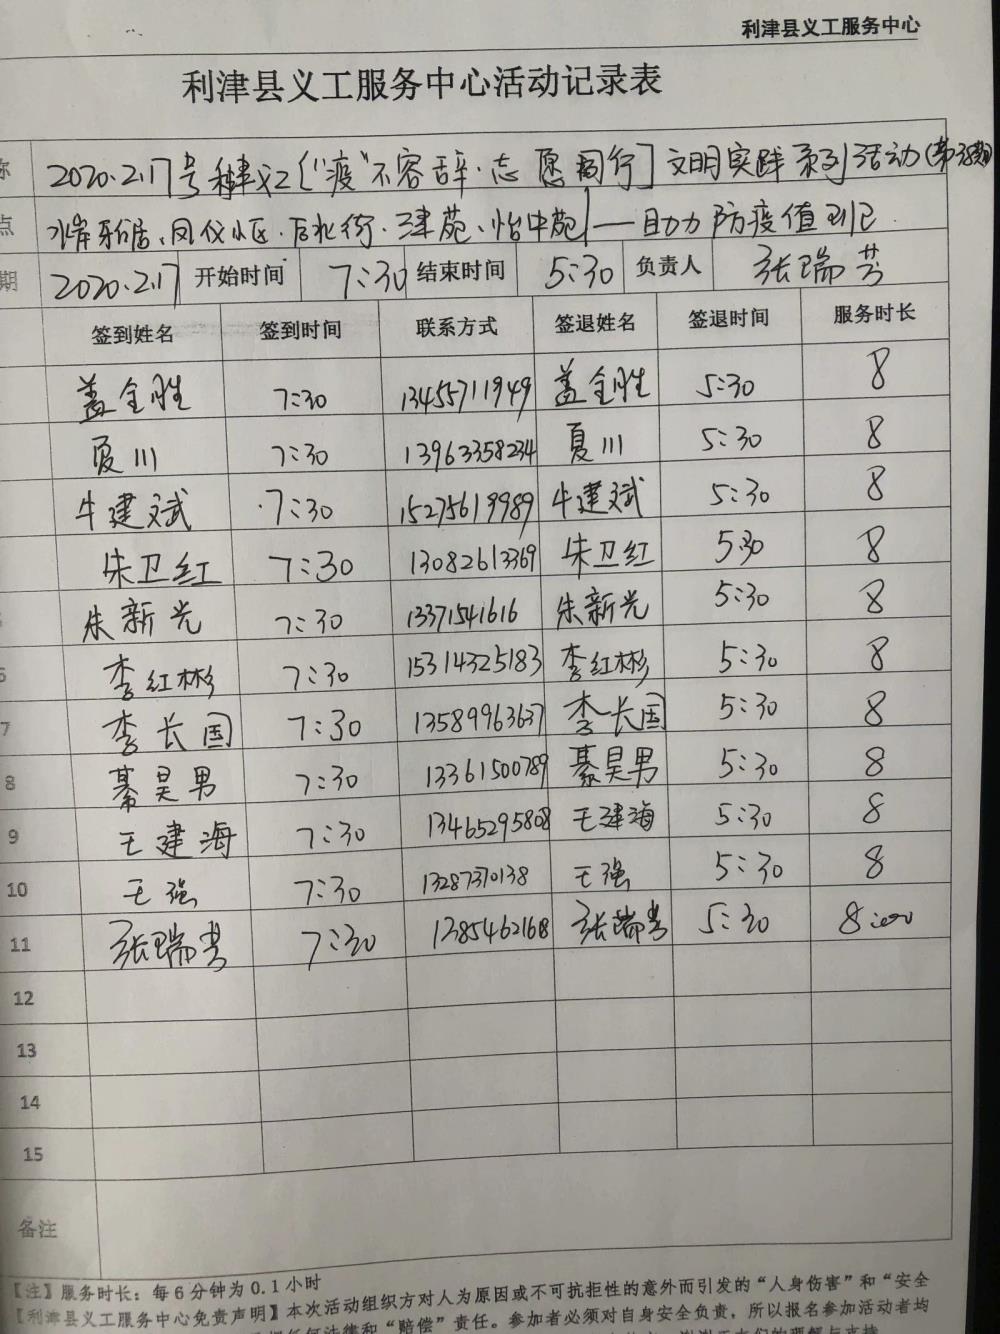 利津县义工服务中心
利津县义工服务中心活动记录表
称 2020.2.17号 津义工〔"疫"不容辞·志愿同行〕文明实践系列活动
点 凤仪小区、津苑、怡中苑——助力防疫值班
期 2020.2.17 开始时间 7:30 结束时间 5:30 负责人 张瑞芳
签到姓名 签到时间 联系方式 签退姓名 签退时间 服务时长
盖全胜 7:30 13455711949 盖全胜 5:30 8
夏川 7:30 13963358234 夏川 5:30 8
牛建斌 7:30 15275619989 牛建斌 5:30 8
朱卫红 7:30 13082613369 朱卫红 5:30 8
朱新光 7:30 13371541616 朱新光 5:30 8
6 李红彬 7:30 15314325183 李红彬 5:30 8
7 李长国 7:30 13589963637 李长国 5:30 8
8 綦昊男 7:30 13361500789 綦昊男 5:30 8
9 王建海 7:30 13465295808 王建海 5:30 8
10 王强 7:30 13287370138 王强 5:30 8
11 张瑞芳 7:30 1385462168 张瑞芳 5:30 8:00
12
13
14
15
备注
【注】服务时长：每6分钟为0.1小时
【利津县义工服务中心免责声明】本次活动组织方对人为原因或不可抗拒性的意外而引发的“人身伤害”和“安全
任何法律和“赔偿”责任。参加者必须对自身安全负责，所以报名参加活动者均